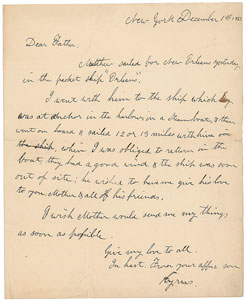 New York December 1st 1833
Dear Father,
sailed for New Orleans yesterday
in the packet ship "Orleans".
I went with him to the ship which lay
was at anchor in the harbor in a Steam boat, & then
went on board & sailed 12 or 13 miles with him in
the ship, when I was obliged to return in the
boat, they had a good wind & the ship was soon
out of site; he wished to have me give his love
to you, Mother & all of his friends.
I wish Mother would send me my things
as soon as possible.
Give my love to all
In hast. From your affec son
Cyrus